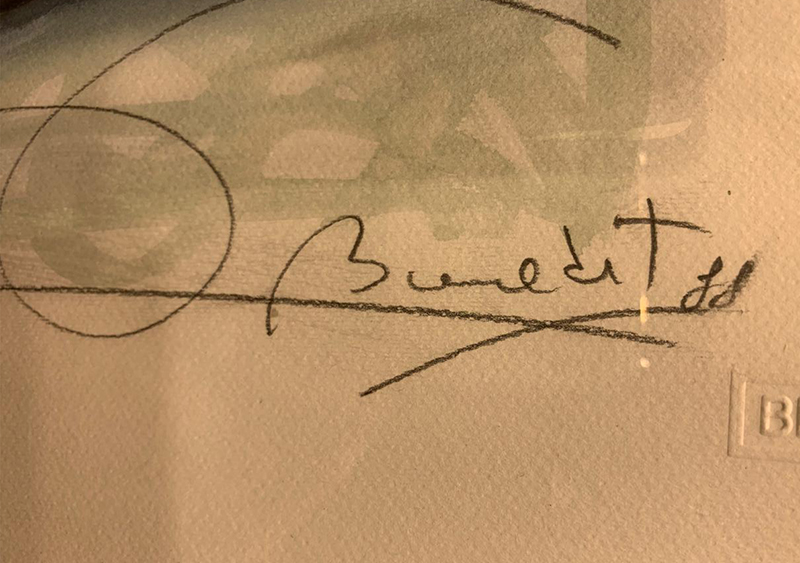 Benedit 88